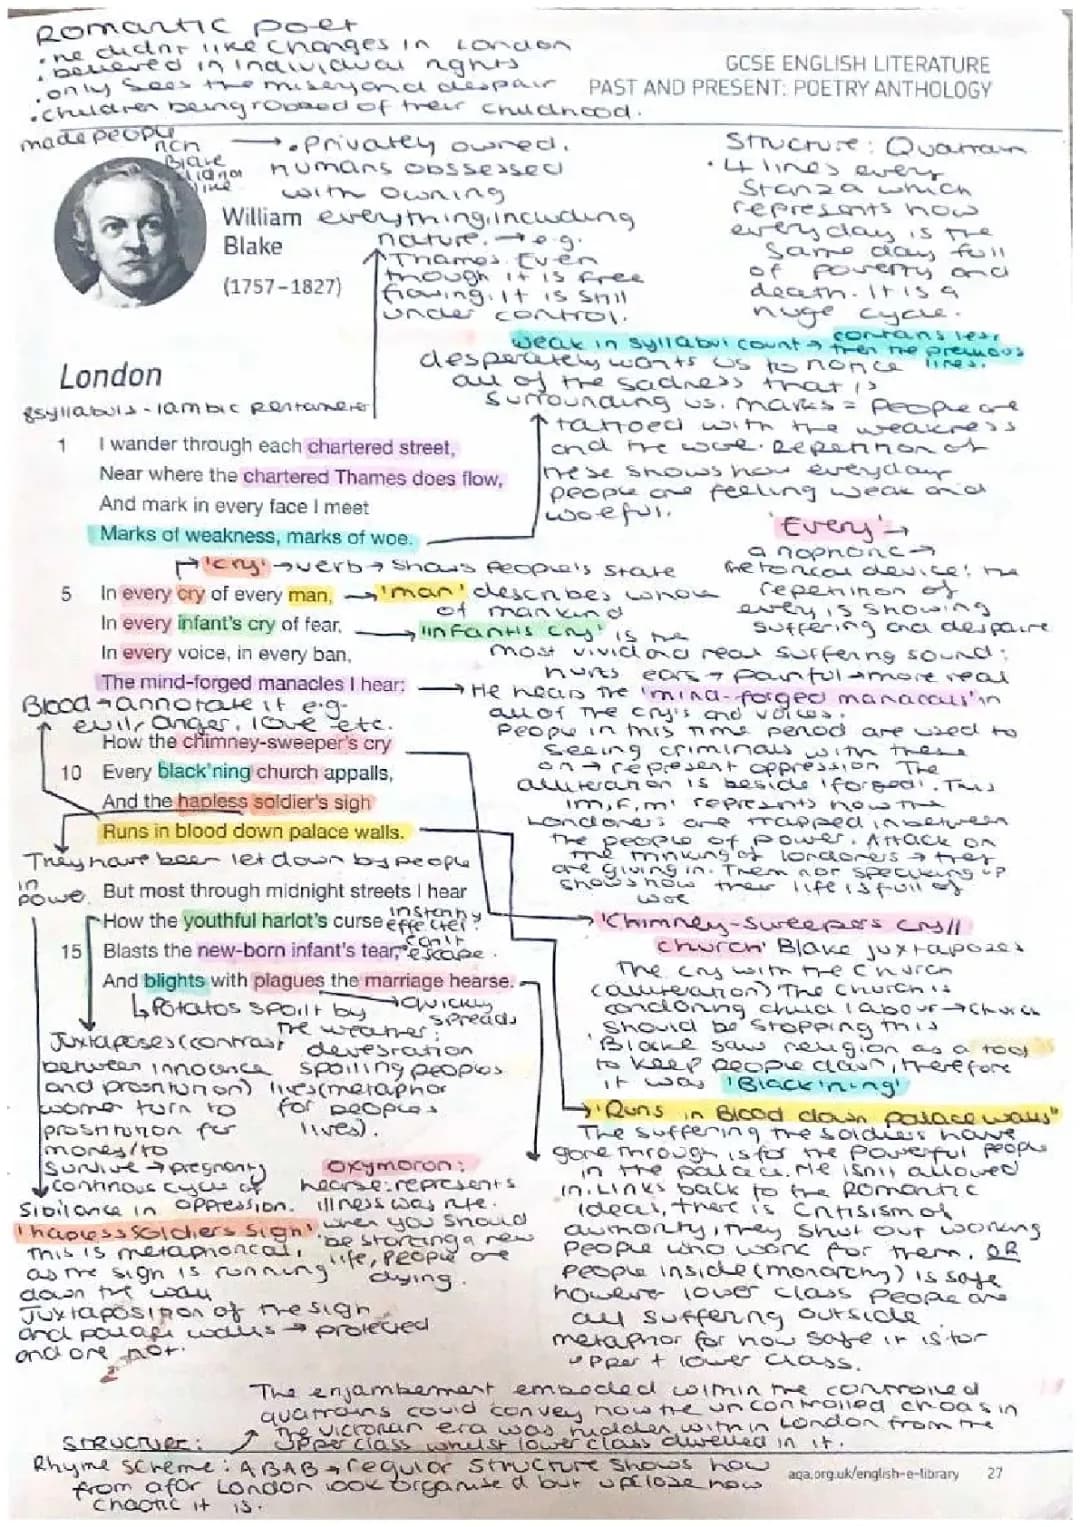 Romantic poet
• he didnt like changes in London
• believed in individual rights
• only sees the misery and despair
• children being robbed of their childhood.
GCSE ENGLISH LITERATURE
PAST AND PRESENT: POETRY ANTHOLOGY
made people
rich
Blake
didnot
like
→ • Privately owned.
humans obssessed
with owning
everything, including
nature. → e.g.
Thames. Even
though it is free
flowing. It is still
under control.
William
Blake
(1757–1827)
Structure: Quatrain
• 4 lines every
stanza which
represents how
everyday is the
same day full
of poverty and
death. It is a
huge cycle.
weak in syllabul count → contains less
then the previous
lines.
desperately wants us to notice
all of the sadness that is
surrounding us. marks = people are
tattoed with the weakness
and the woe. Repetition of
these shows how everyday
people are feeling weak and
woeful.
London
8 syllabuls - iambic pentameter
1 I wander through each chartered street,
Near where the chartered Thames does flow,
And mark in every face I meet
Marks of weakness, marks of woe.
'Every' →
anaphoric →
rhetorical device: the
repetition of
every is showing
suffering and despaire
'cry' → verb → shows people's state
5 In every cry of every man,
→ 'man' describes whole
of mankind
In every infant's cry of fear,
→ 'infant's cry' is the
most vivid and real suffering sound:
hurts ears → painful → more real
In every voice, in every ban,
The mind-forged manacles I hear:
→ He hears the 'mind-forged manacals' in
all of the cry's and voices.
People in this time period are used to
seeing criminals with these
on → represent oppression The
alliteration is beside 'forged'. This
'm, f, m' represents how the
Londoners are trapped in between
the people of power. Attack on
the thinking of londoners → they
are giving in. Them not speaking up
shows how their life is full of
woe
Blood → annotate it e.g.
evil, anger, love etc.
How the chimney-sweeper's cry
10 Every black'ning church appalls,
And the hapless soldier's sigh
Runs in blood down palace walls.
They have been let down by people
in
power.
But most through midnight streets I hear
How the youthful harlot's curse
instantly
effected.
15 Blasts the new-born infant's tear,
can't
escape.
And blights with plagues the marriage hearse.
↳ Potatos spoilt by
the weather:
devestation
spoiling peoples
lives (metaphor
for peoples
lives).
→ quickly
spreads
Juxtaposes (contrast
between innocence
and prostitution)
women turn to
prostitution for
money/to
survive → pregnancy
continous cycle of
oppression.
oxymoron:
hearse: represents
illness was rife.
when you should
be starting a new
life, people are
dying.
Sibilance in
'hapless soldiers sigh'
this is metaphorical,
as the sigh is running
down the wall
Juxtaposition of the sigh
and palace walls → protected
and are not.
→ 'Chimney-sweepers cry//
church' Blake juxtaposes
The cry with the church
(alliteration) The church is
condoning child labour → church
should be stopping this
Blake saw religion as a tool
to keep people down, therefore
it was 'Black'ning'
→ 'Runs in Blood down palace walls"
The suffering the soldiers have
gone through is for the powerful people
in the palace. He isn't allowed
in. Links back to the Romantic
ideas, there is critisism of
authority, they shut out working
people who work for them. OR
People inside (monarchy) is safe
however lower class people are
all suffering outside.
metaphor for how safe it is for
upper + lower class.
The enjambement embedded within the controlled
quatrains could convey how the uncontrolled choas in
the victorian era was hidden within London from the
upper class whilst lower class dwelled in it.
Structuer:
Rhyme scheme: ABAB → regular structure shows how
from afar London look organised but upclose how
chaotic it is.
aqa.org.uk/english-e-library 27